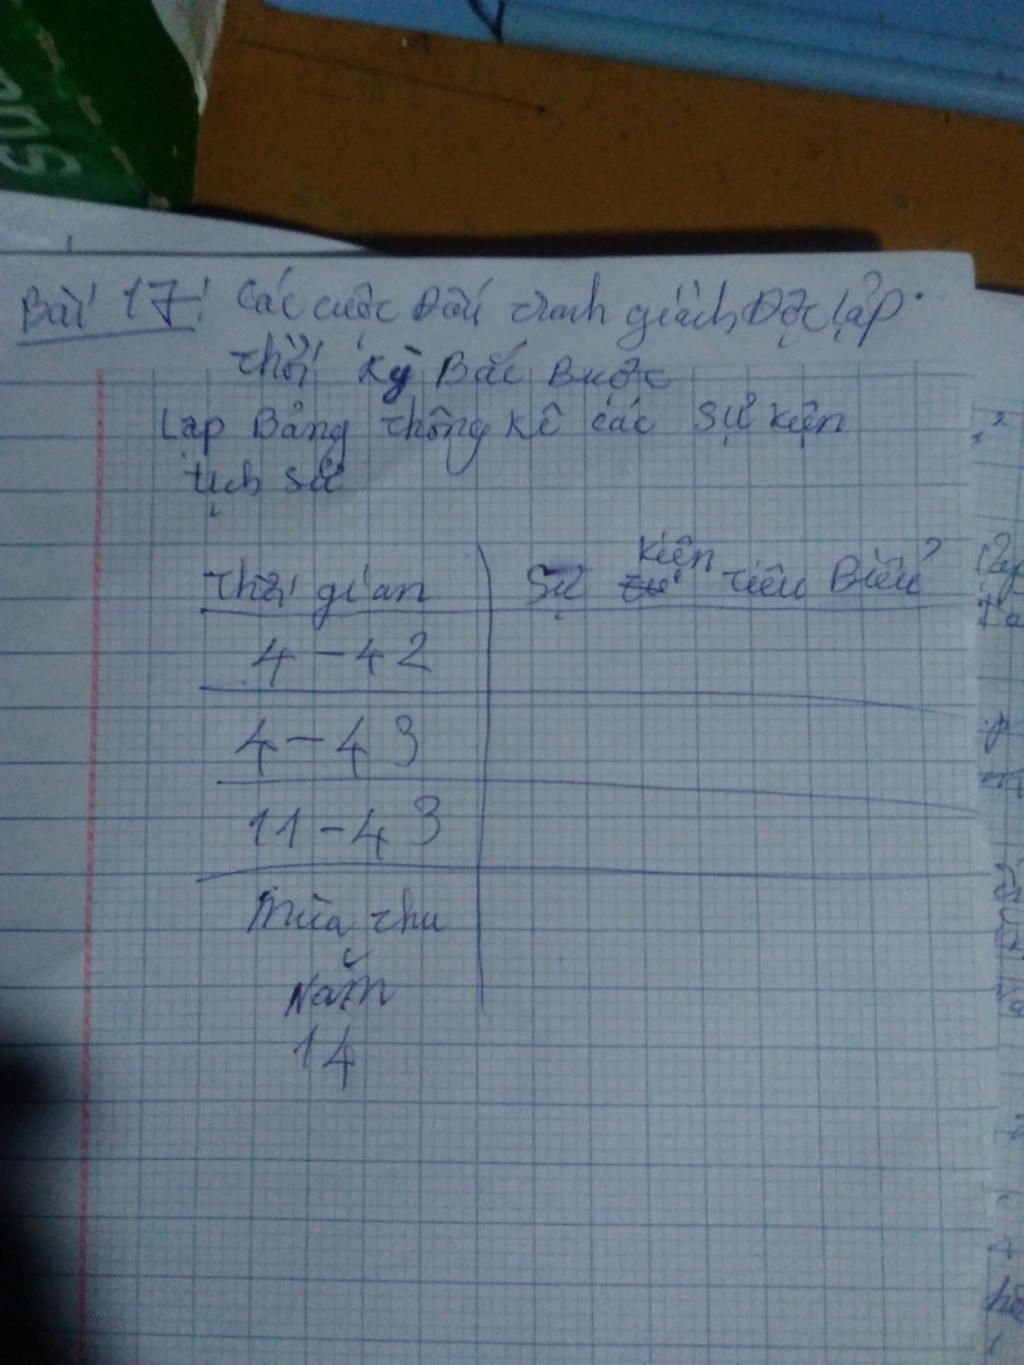 Bài 17: Các cuộc Đấu tranh giành Độc lập
thời kỳ Bắc Buộc
Lập Bảng thống kê các sự kiện
lịch sử
thời gian
sự kiện tiêu Biểu
4-42
4-43
11-43
Mùa thu
Năm
14